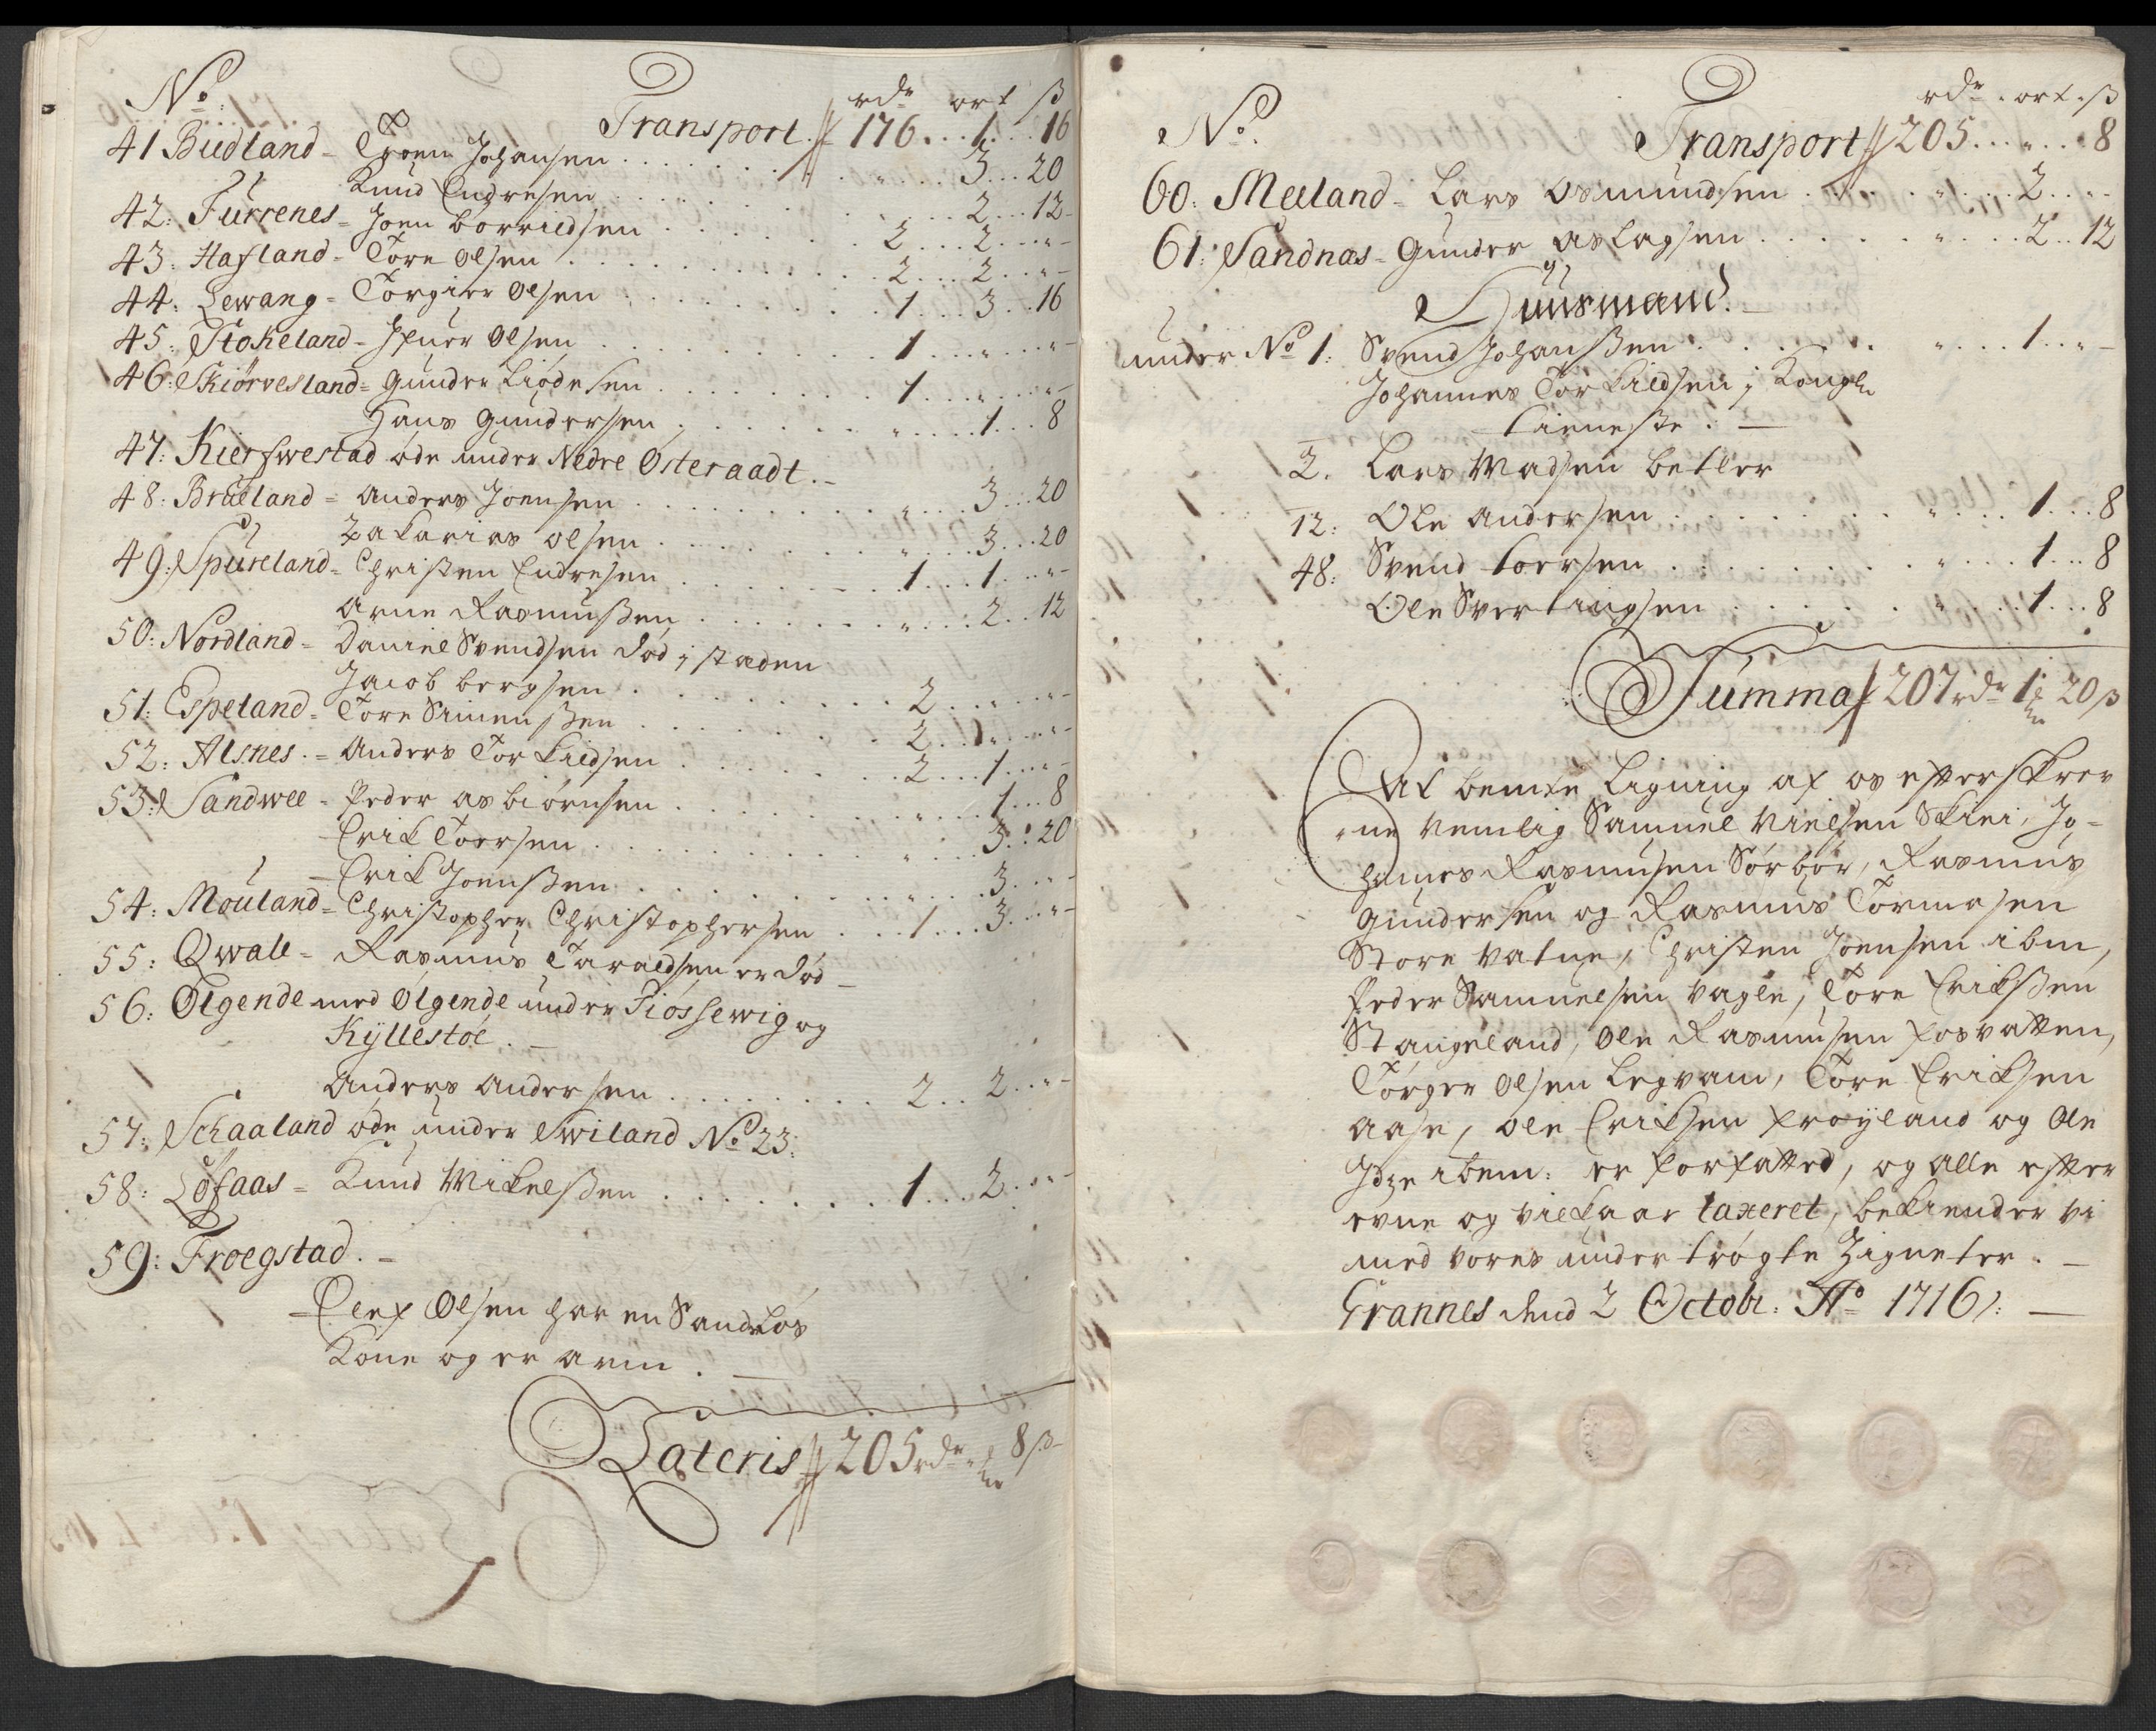 No:
rdr ort ß
Transport 176 . . . 1 . . . 16
41 Budland = Troen Johansen . . . . " . . . 3 . . . 20
Knud Endresen . . . . " . . . 2 . . . 12
42: Furrenes = Joen borrildsen . . . . 2 . . . 2 . . . "
43: Hafland = Tore Olsen . . . . 2 . . . 2 . . . "
44: Lewang = Torgier Olsen . . . . 1 . . . 3 . . 16
45: Stokeland = Ifuer Olsen . . . . 1 . . . " . . . "
46: Skiørvesland = Gunder Liødesen . . . . 1 . . . " . . . "
Hans Gundersen . . . . " . . . 1 . . . 8
47: Kierfwestad øde under Nedre Østeraadt.
48: Brueland = Anders Joensen . . . . " . . . 3 . . . 20
Zakarias Olsen . . . . " . . . 3 . . . 20
49: Spureland = Christen Endresen . . . . 1 . . . 1 . . . "
Arne Rasmusßen . . . . " . . . 2 . . 12
50: Nordland = Daniel Svendsen død i staden
Jacob bergsen . . . . 2 . . . " . . . "
51: Espeland = Tore Simenßen . . . . 2 . . . " . . . "
52: Alsnes = Anders Torkildsen . . . . 2 . . . 1 . . . "
53: Sandwee = Peder asbiørnsen . . . . " . . . 1 . . . 8
Erik Toersen . . . . " . . . 3 . . 20
Erik Joensßen . . . . " . . . 3 . . . "
54: Mouland = Christopher Christophersen . . . 1 . . . 3 . . . "
55: Qwale = Rasmus Taraldsen er død
56: Ølgende med Ølgende under Tiossewig og
Kyllestoe.
Anders Andersen . . . . 2 . . 2 . . . "
57: Schaaland øde under Swiland No 23:
58: Løfaas = Knud Mikelßen . . . . 1 . . . 2 . . . "
59: Froegstad.
Elef Olsen har en Sandsløs
Kone og er arm.
Lateris 205 rdr " 8 ß
No.
rdr . ort . ß
Transport 205 . . . " . . . 8
60: Meeland = Lars Osmundsen . . . . " . . . 2 . . "
61: Sandnæs = Gunder aslagsen . . . . " . . . 2 . . 12
Huusmænd.
under No 1: Svend Johanßen . . . . " . . . 1 . . "
Johannes Torkildsen i Kongl:
tieneste.
2. Lars Madsen betler
12: Ole Andersen . . . . " . . . 1 . . . 8
48: Svend toersen . . . . " . . . 1 . . . 8
Ole Svertingsen . . . . " . . . 1 . . . 8
Summa 207 rdr 1 20 ß
At bemte Ligning af os effterskrev
=ne nemlig Samuel Nielsen Skiei, Jo=
hannes Rasmusen Sørbør, Rasmus
Gundersen og Rasmus Tormosen
Store Vatne, Christen Joensen ibm,
Peder Samuelsen Vagle, Tore Eriksßen
Stangeland, Ole Rasmusen Fosvatten,
Tørger Olsen Legvam, Tore Eriksen
Aase, Ole Eriksen Frøyland og Ole
ibem: er forfatted, og alle effter
evne og vilkaar taxeret, bekiender vi
med vores undertrøgte Zigneter.
Grannes dend 2 Octobr: Ao 1716: